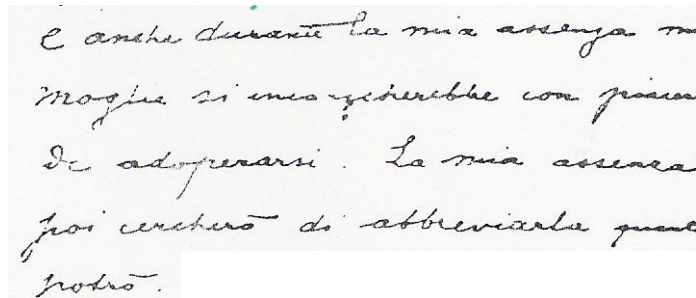 e anche durante la mia assenza m
moglie si incaricherebbe con piacer
di adoperarsi. La mia assenza
poi cercherò di abbreviarla quant
potrò.